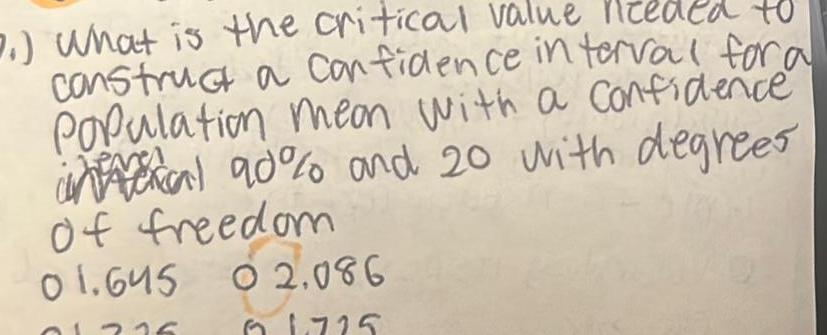 .) What is the critical value needed to
construct a confidence interval for a
population mean with a confidence
level 90% and 20 with degrees
of freedom
O 1.645 O 2.086
O 1.725